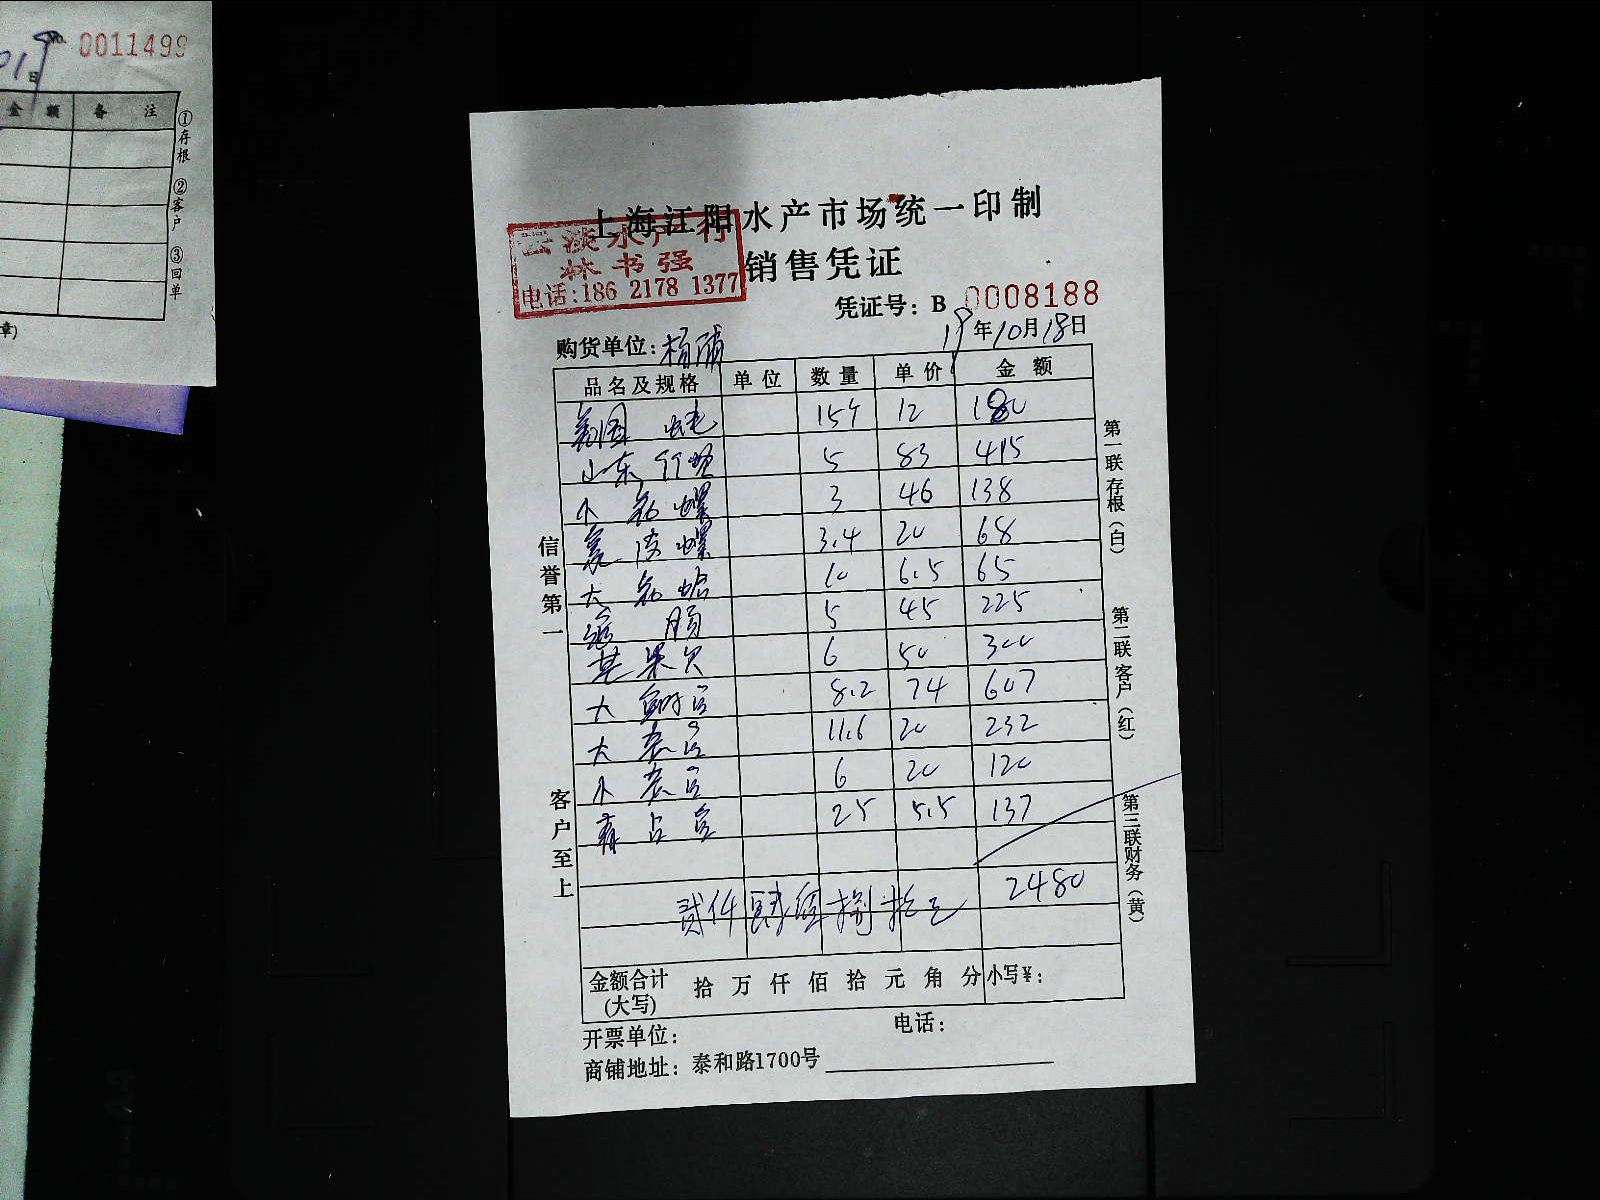 No. 0011499
日
金 额 备 注
①存根
②客户
③回单
章)
上海江阳水产市场统一印制
云淡水产行
林书强
电话:186 2178 1377
销售凭证
凭证号: B 0008188
19年10月18日
购货单位: 杨浦
品名及规格 单位 数量 单价 金额
12 180
山东 5 83 415
小 螺 3 46 138
螺 3.4 20 68
大 蛤 10 6.5 65
5 45 225
6 50 300
大 8.2 74 607
大 11.6 20 232
小 6 20 120
25 5.5 137
贰仟肆佰捌拾元 2480
金额合计(大写) 拾 万 仟 佰 拾 元 角 分 小写¥:
开票单位: 电话:
商铺地址: 泰和路1700号
信誉第一
客户至上
第一联 存根(白)
第二联 客户(红)
第三联 财务(黄)